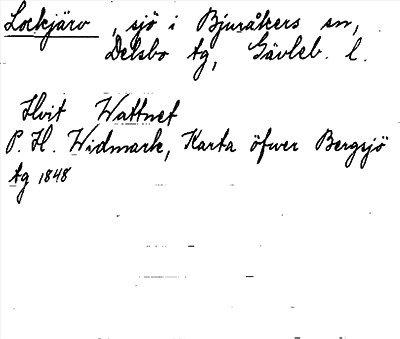 Lockjärv, sjö i Bjuråkers sn,
Delsbo tg, Gävleb. l.
Hvit Wattnet
P. H. Widmark, Karta öfver Bergsjö
tg 1848